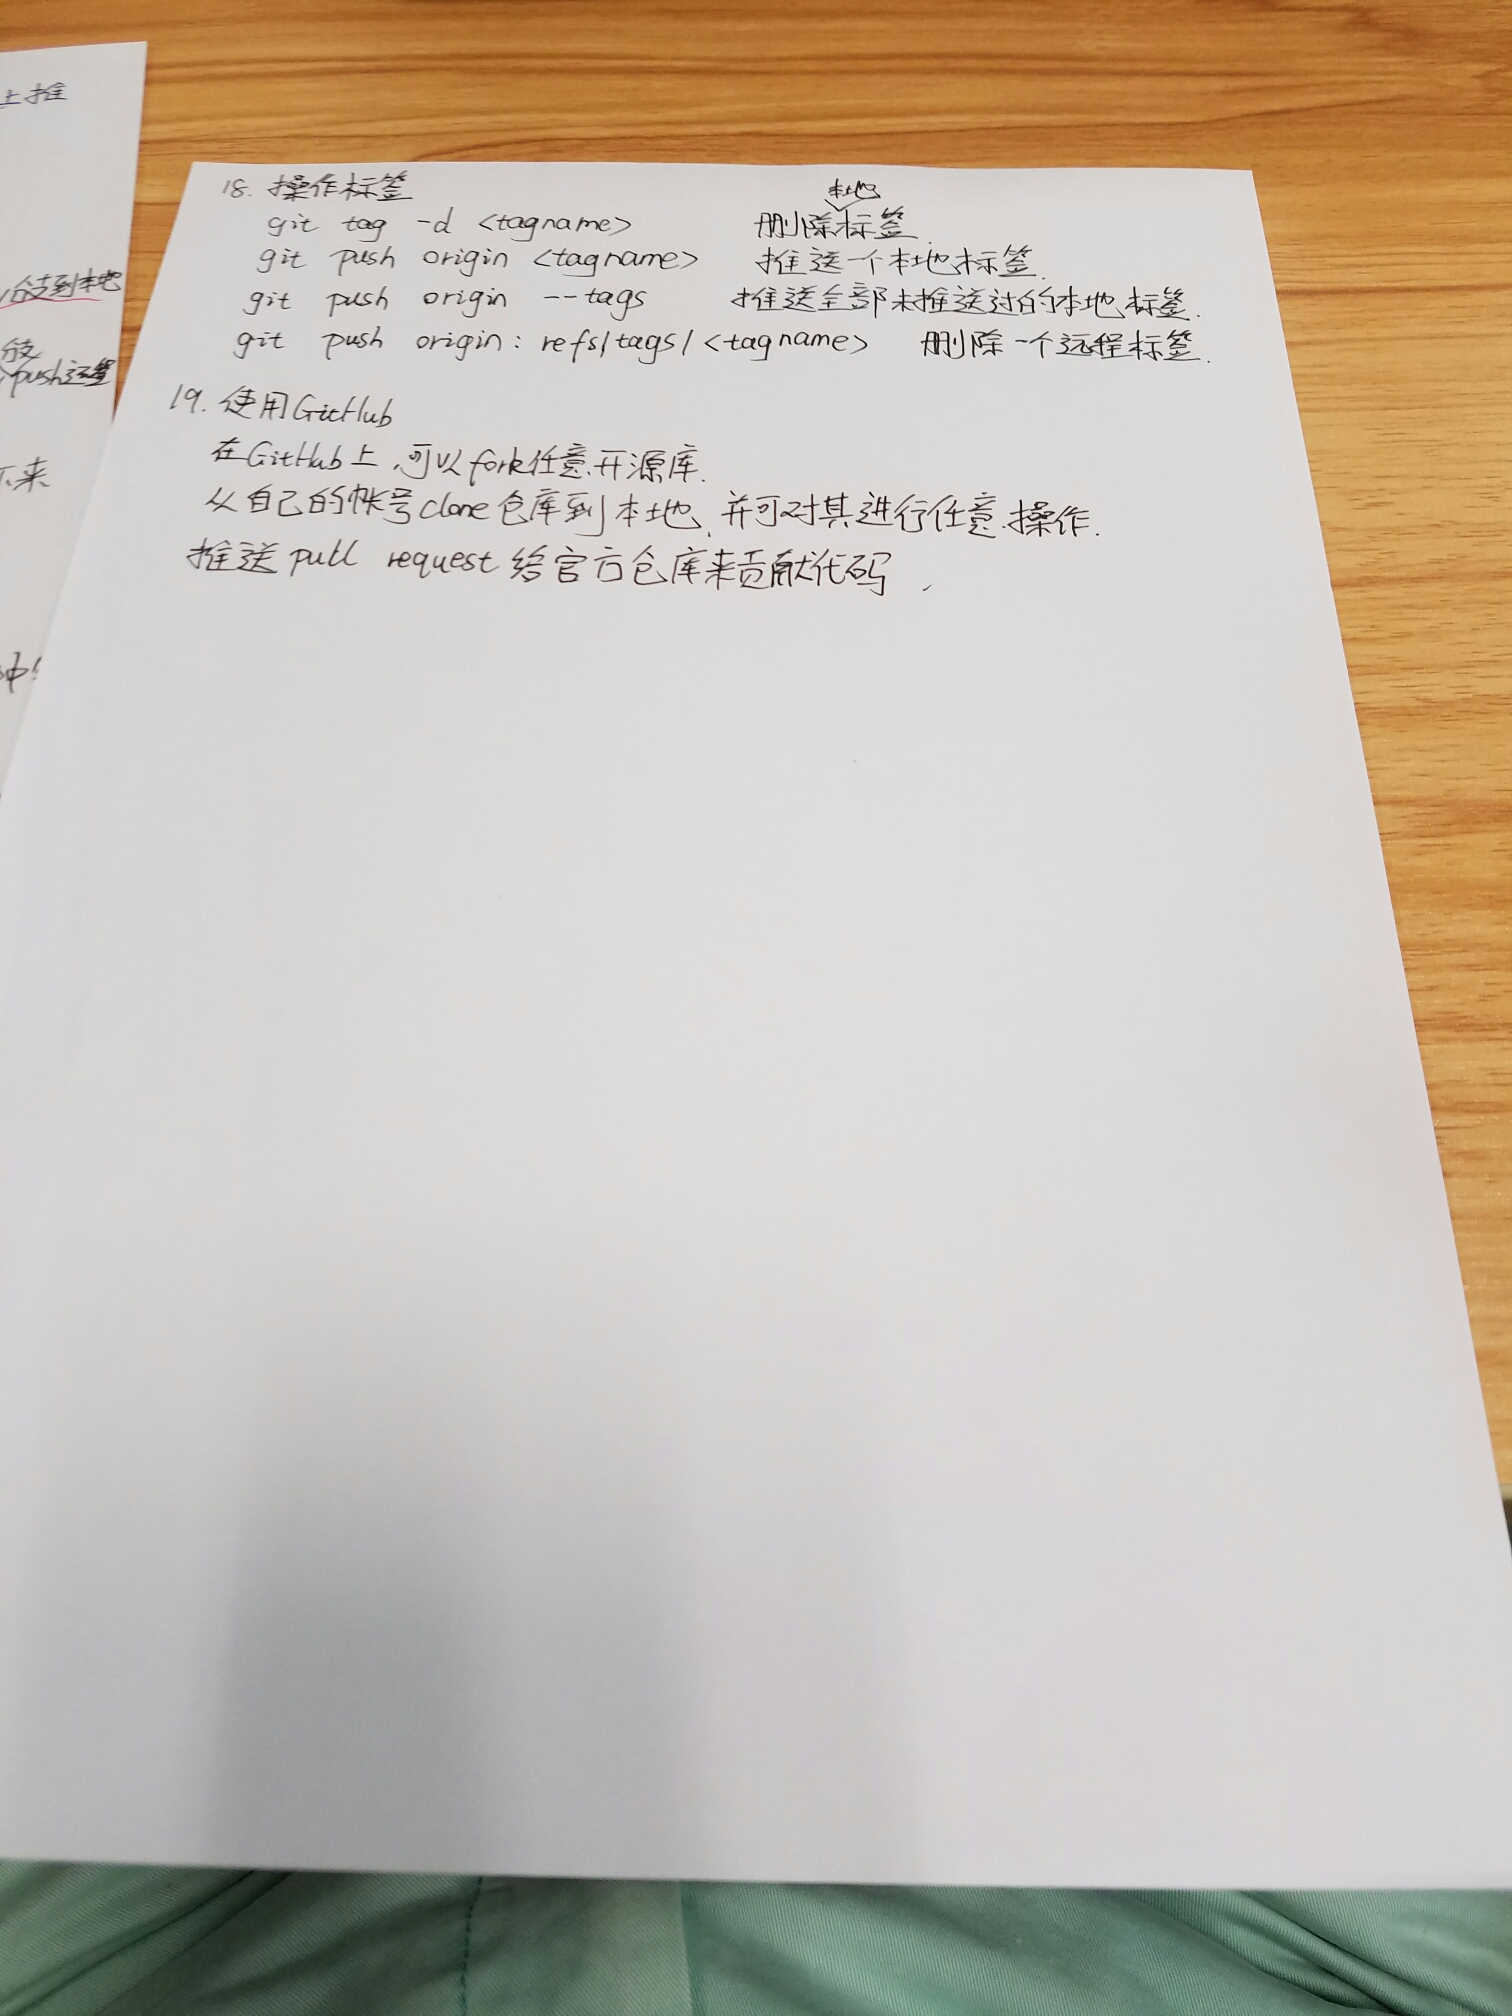 上推
分支到本地
push远程
下来
18. 操作标签
本地
git tag -d <tagname> 删除标签.
git push origin <tagname> 推送一个本地标签.
git push origin --tags 推送全部未推送过的本地标签.
git push origin : refs/tags/<tagname> 删除一个远程标签.
19. 使用GitHub
在GitHub上,可以fork任意开源库.
从自己的帐号clone仓库到本地,并可对其进行任意操作.
推送 pull request 给官方仓库来贡献代码.